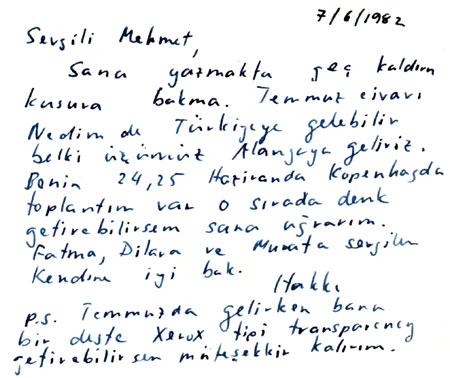 7/6/1982
Sevgili Mehmet,
Sana yazmakta geç kaldım
kusura bakma. Temmuz civarı
Nedim de Türkiyeye gelebilir
belki üçümüz Alanyaya geliriz.
Benim 24,25 Haziranda Kopenhagda
toplantım var o sırada denk
getirebilirsem sana uğrarım.
Fatma, Dilara ve Murata sevgiler
Kendine iyi bak.
Hakkı
p.s. Temmuzda gelirken bana
bir deste Xerox tipi transparency
getirebilirsen müteşekkir kalırım.